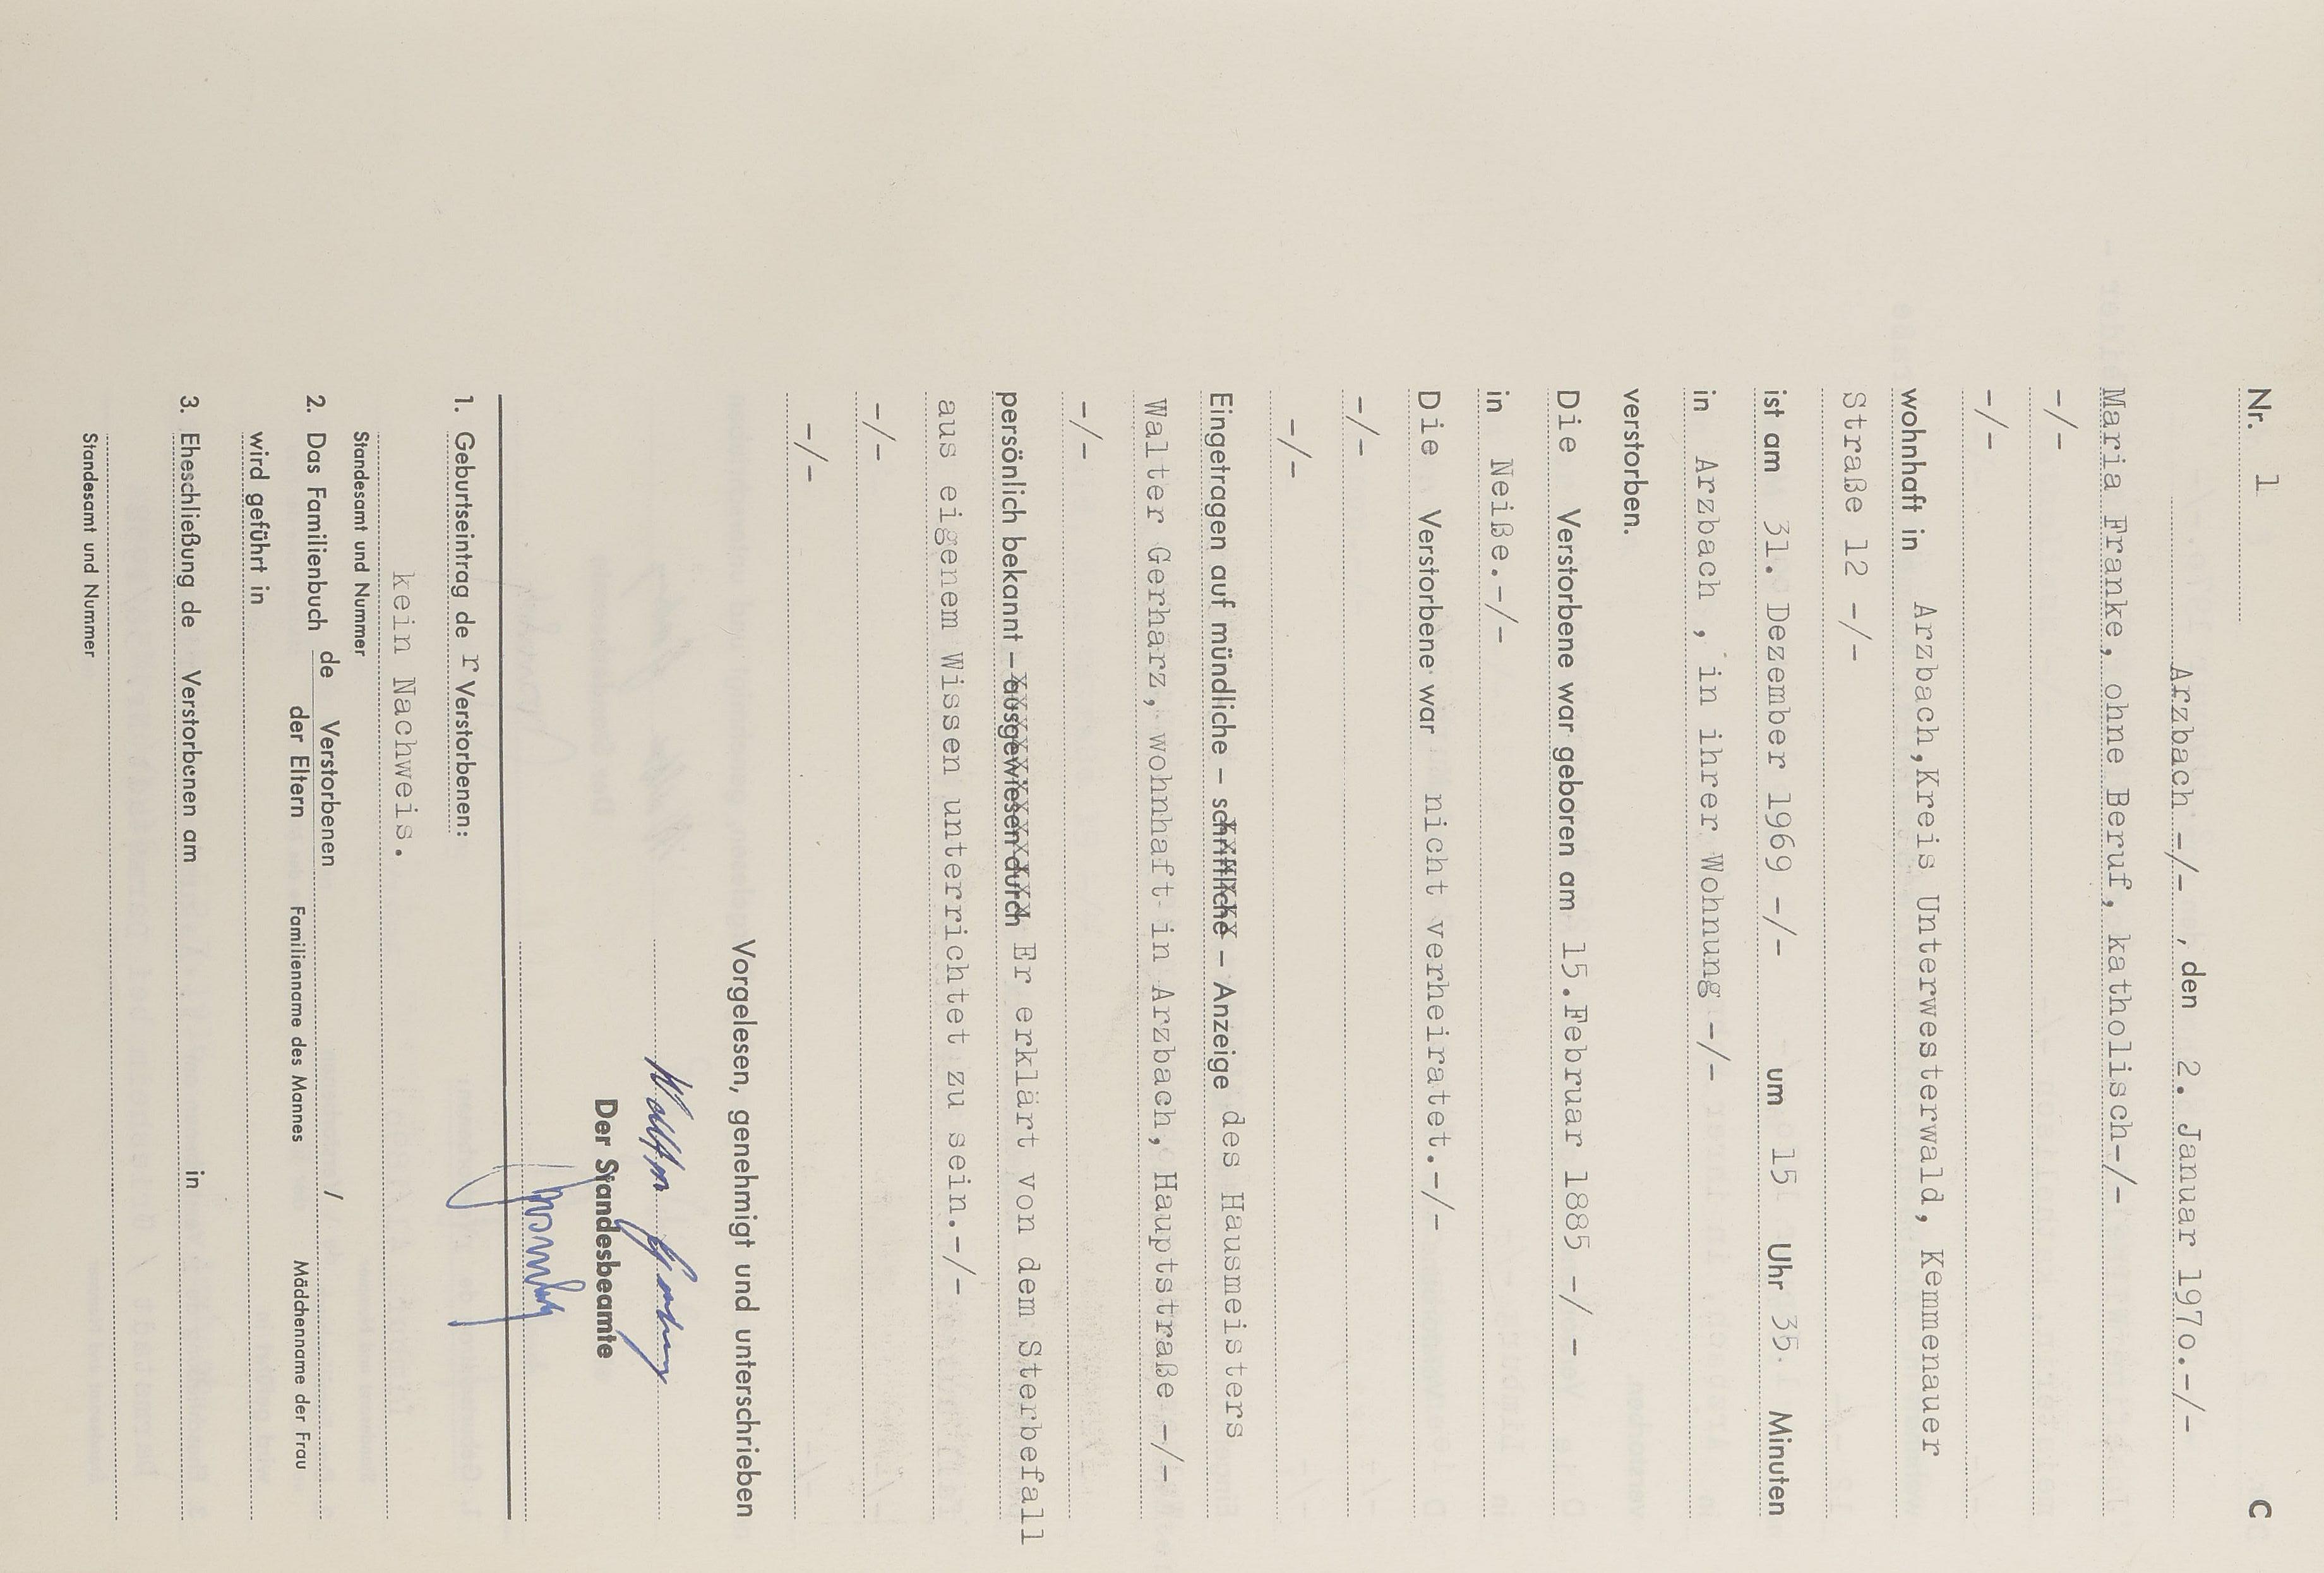 Nr. 1 C
Arzbach -/- , den 2. Januar 197o.-/-
Maria Franke, ohne Beruf, katholisch-/-
-/-
-/-
wohnhaft in Arzbach,Kreis Unterwesterwald, Kemmenauer
Straße 12 -/-
ist am 31. Dezember 1969 -/- um 15 Uhr 35 Minuten
in Arzbach , in ihrer Wohnung -/-
verstorben.
Die Verstorbene war geboren am 15.Februar 1885 -/ -
in Neiße.-/-
Die Verstorbene war nicht verheiratet.-/-
-/-
-/-
Eingetragen auf mündliche – schriftliche – Anzeige des Hausmeisters
Walter Gerharz, wohnhaft in Arzbach, Hauptstraße -/-
-/-
persönlich bekannt – ausgewiesen durch Er erklärt von dem Sterbefall
aus eigenem Wissen unterrichtet zu sein.-/-
-/-
-/-
Vorgelesen, genehmigt und unterschrieben
Walter Gerharz
Der Standesbeamte
1. Geburtseintrag de r Verstorbenen:
kein Nachweis.
Standesamt und Nummer
2. Das Familienbuch de Verstorbenen /
der Eltern Familienname des Mannes Mädchenname der Frau
wird geführt in
3. Eheschließung de Verstorbenen am in
Standesamt und Nummer